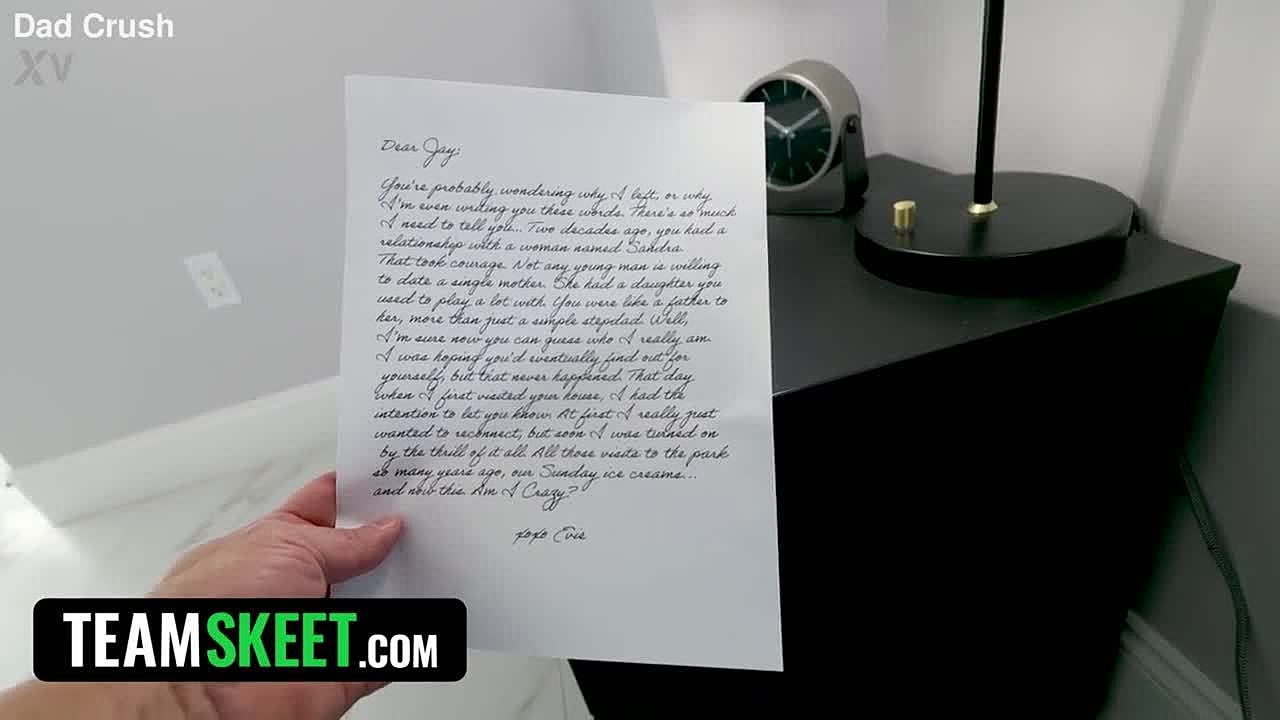 Dad Crush
XV
Dear Jay;
You're probably wondering why I left, or why
I'm even writing you these words. There's so much
I need to tell you... Two decades ago, you had a
relationship with a woman named Sandra.
That took courage. Not any young man is willing
to date a single mother. She had a daughter you
used to play a lot with. You were like a father to
her, more than just a simple stepdad. Well,
I'm sure now you can guess who I really am.
I was hoping you'd eventually find out for
yourself, but that never happened. That day
when I first visited your house, I had the
intention to let you know. At first I really just
wanted to reconnect, but soon I was turned on
by the thrill of it all. All those visits to the park
so many years ago, our Sunday ice creams...
and now this. Am I Crazy?
xoxo Evie
TEAMSKEET.COM